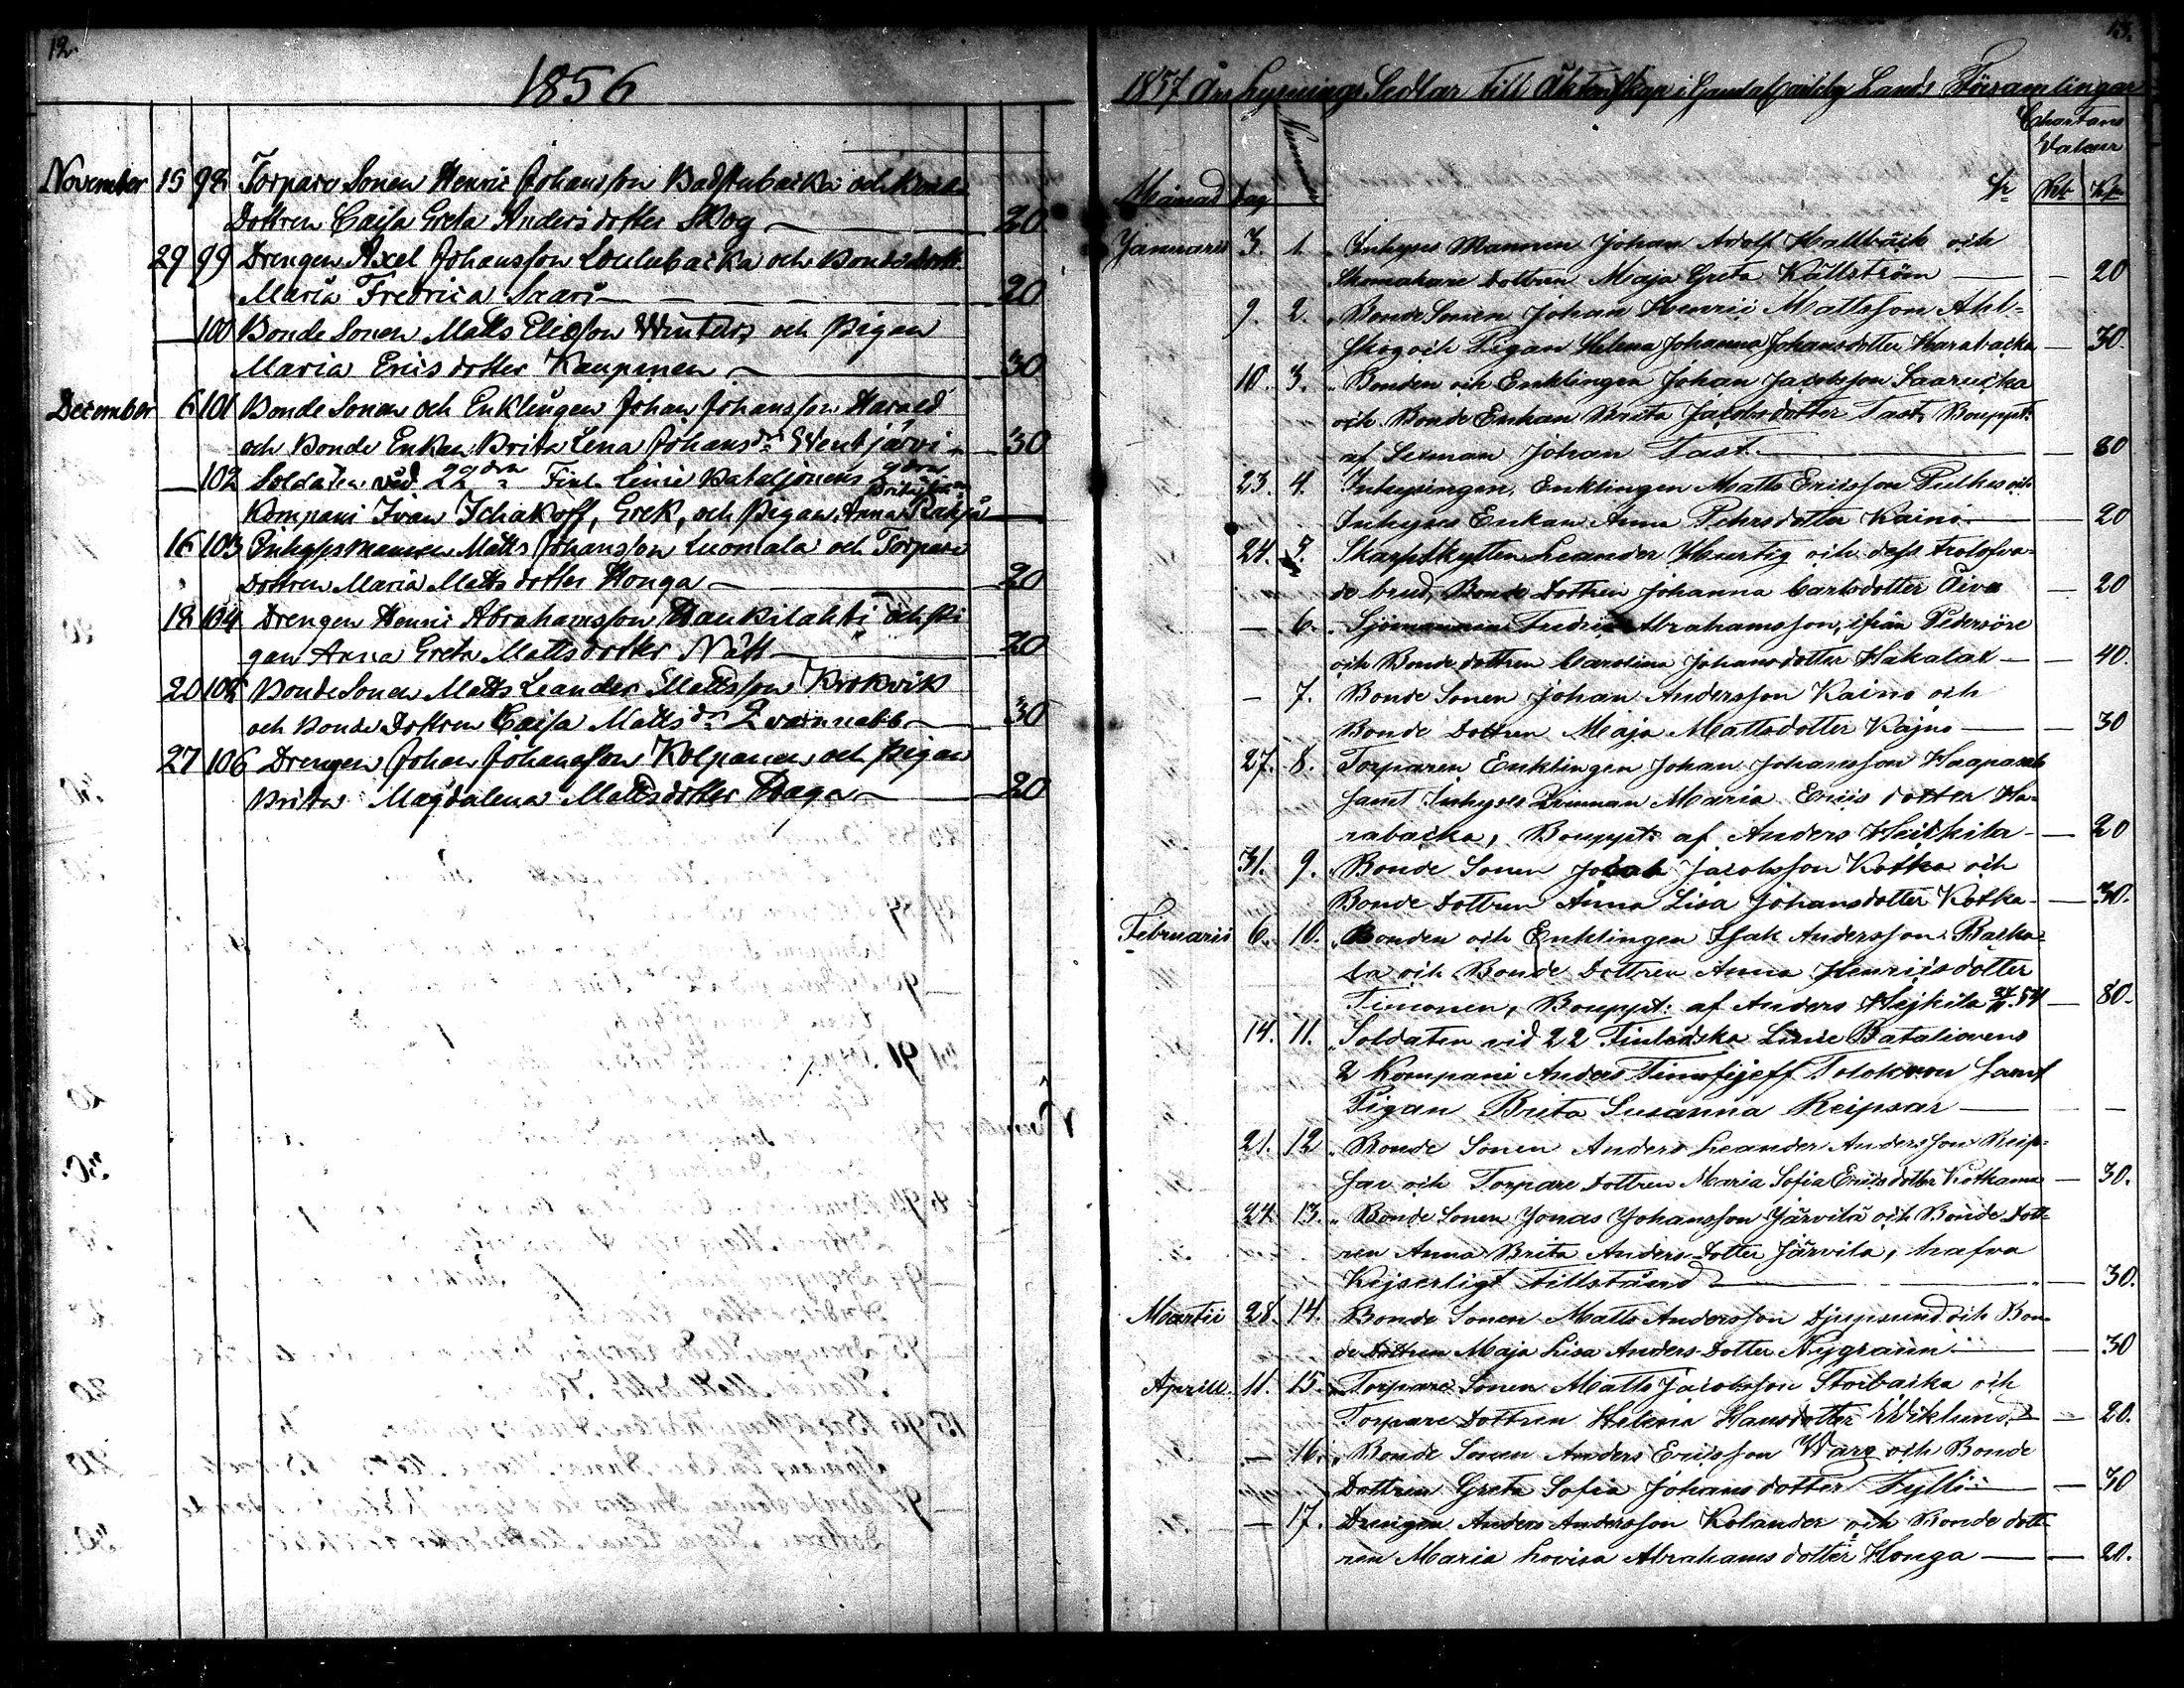 12.
1856
November 15 98 Torpare Sonen Henric Johansson Badstubacka och Bonde
Dottren Caisa Greta Andersdotter Skog — 20
29 99 Drengen Axel Johansson Loulubacka och Bondedottr.
Maria Fredrica Saari — 20
— 100 Bonde Sonen Matts Elieson Winters och Pigan
Maria Ericsdotter Kaupinen — 30
December 6 101 Bonde Sonen och Enklingen Johan Johansson Harald
och Bonde Enkan Brita Lena Johansdr Wentjärvi — 30
— 102 Soldaten vid 22dra Finl. Linie Bataljonens 2dra
Kompani Ivan Ischakoff, Grek, och Pigan Anna Rahja —
16 103 Inhyses mannen Matts Johansson Luomala och Torpare
Dottren Maria Mattsdotter Honga — 20
18 104 Drengen Henric Abrahamsson Haukilahti och Pi
gan Anna Greta Mattsdotter Nätt — 20
20 105 Bonde Sonen Matts Leander Mattsson Krokvik
och Bonde Dottren Caisa Mattsdr Qvarnnabb — 30
27 106 Drengen Johan Johansson Kolpanen och Pigan
Brita Magdalena Mattsdotter Haga — 20
13.
1857 Års Lysnings Sedlar till Äktenskap i Gamlacarleby Lands Församlingar
Chartans
Valeur
Månad Dag Nummer Sr Rbr Kp
Januarii 3. 1. Inhyses Mannen Johan Adolf Hallbäck och
Skomakare Dottren Maja Greta Källström — 20
9. 2. Bonde Sonen Johan Henric Mattsson Ahl-
skog och Pigan Helena Johanna Johansdotter Harabacka — 30.
10. 3. Bonden och Enklingen Johan Jacobsson Saarucka
och Bonde Enkan Brita Jacobsdotter Tast, Bouppt:
af Lexman Johan Tast. — 80
23. 4. Inhysingen, Enklingen Matts Ericsson Pulkis och
Inhyses Enkan Anna Pehrsdotter Kainö — 20
24. 5. Skarpskytten Leander Hurtig och dess trolofva-
de brud, Bonde Dottren Johanna Carlsdotter Öiva — 20
— 6. Sjömannen Fredric Abrahamsson, ifrån Pedersöre
och Bonde dottren Carolina Johansdotter Hakalax — 40.
— 7. Bonde Sonen Johan Andersson Kainö och
Bonde Dottren Maja Mattsdotter Kajnö — 30
27. 8. Torparen Enklingen Johan Johansson Haapasalo
samt Inhyses Qvinnan Maria Ericsdotter Ha-
rabacka, Bouppt: af Anders Heikkila — 20
31. 9. Bonde Sonen Jacob Jacobsson Kotka och
Bonde Dottren Anna Lisa Johansdotter Kotka — 30.
Februarii 6. 10. Bonden och Enklingen Isak Andersson Raska-
la och Bonde Dottren Anna Henricsdotter
Timonen, Bouppt: af Anders Hejkila 54 — 80.
14. 11. Soldaten vid 22 Finlandska Linie Bataliovens
2 Kompani Anders Timofejeff Tolokvon samt
Pigan Brita Susanna Reipsar —
21. 12. Bonde Sonen Anders Leander Andersson Reip-
sar och Torpare Dottren Maria Sofia Ericsdotter — 30.
24. 13. Bonde Sonen Jonas Johansson Järvilä och Bonde Dott-
ren Anna Brita Andersdotter Järvila, hafva
Kejserligt Tillstånd — 30.
Martii 28. 14. Bonde Sonen Matts Andersson Djupsund och Bon-
de Dottren Maja Lisa Andersdotter Nygränn — 30
Aprill 11. 15. Torpare Sonen Matts Jacobsson Storbacka och
Torpare Dottren Helena Hansdotter Wiklund — 20.
— 16. Bonde Sonen Anders Ericsson Warg och Bonde
Dottren Greta Sofia Johansdotter Tylli — 30
— 17. Drengen Anders Andersson Kolander och Bonde dott-
ren Maria Lovisa Abrahamsdotter Honga — 20.